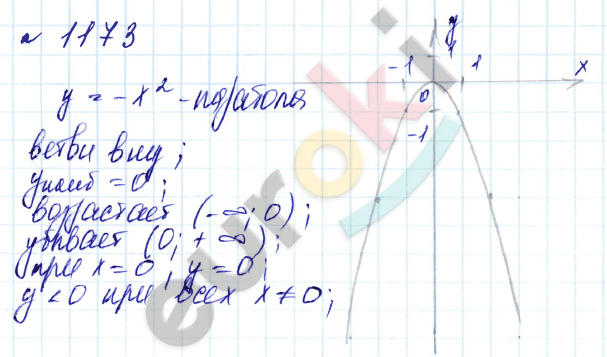 № 1173
y
-1
1
1
x
y = -x² - парабола
0
-1
ветви вниз;
yнаиб = 0;
возрастает (-∞; 0);
убывает (0; +∞);
при x = 0, y = 0;
y < 0 при всех x ≠ 0;
euroki